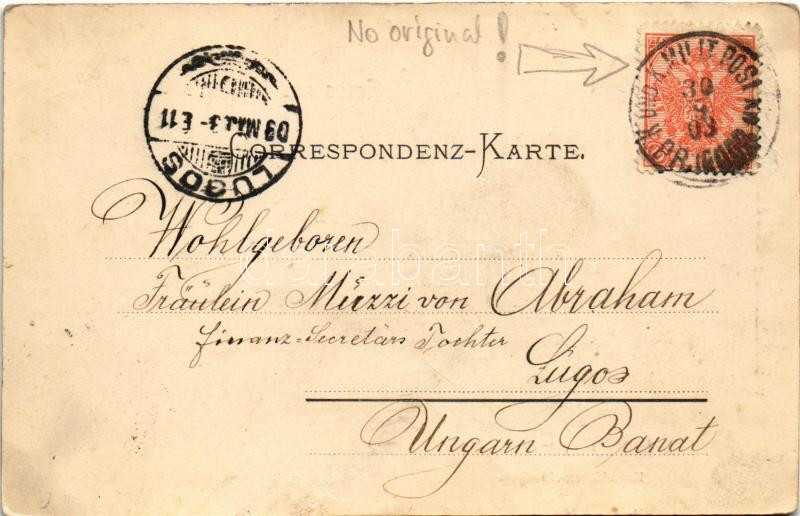 No original!
LUGOS
03 MÁJ. 3 - É.11
K. UND K. MILIT. POST
30
03
CORRESPONDENZ-KARTE.
Wohlgeboren
Fräulein Mizzi von Abraham
Finanz-Secretärs Tochter
Lugos
Ungarn Banat
darabanth